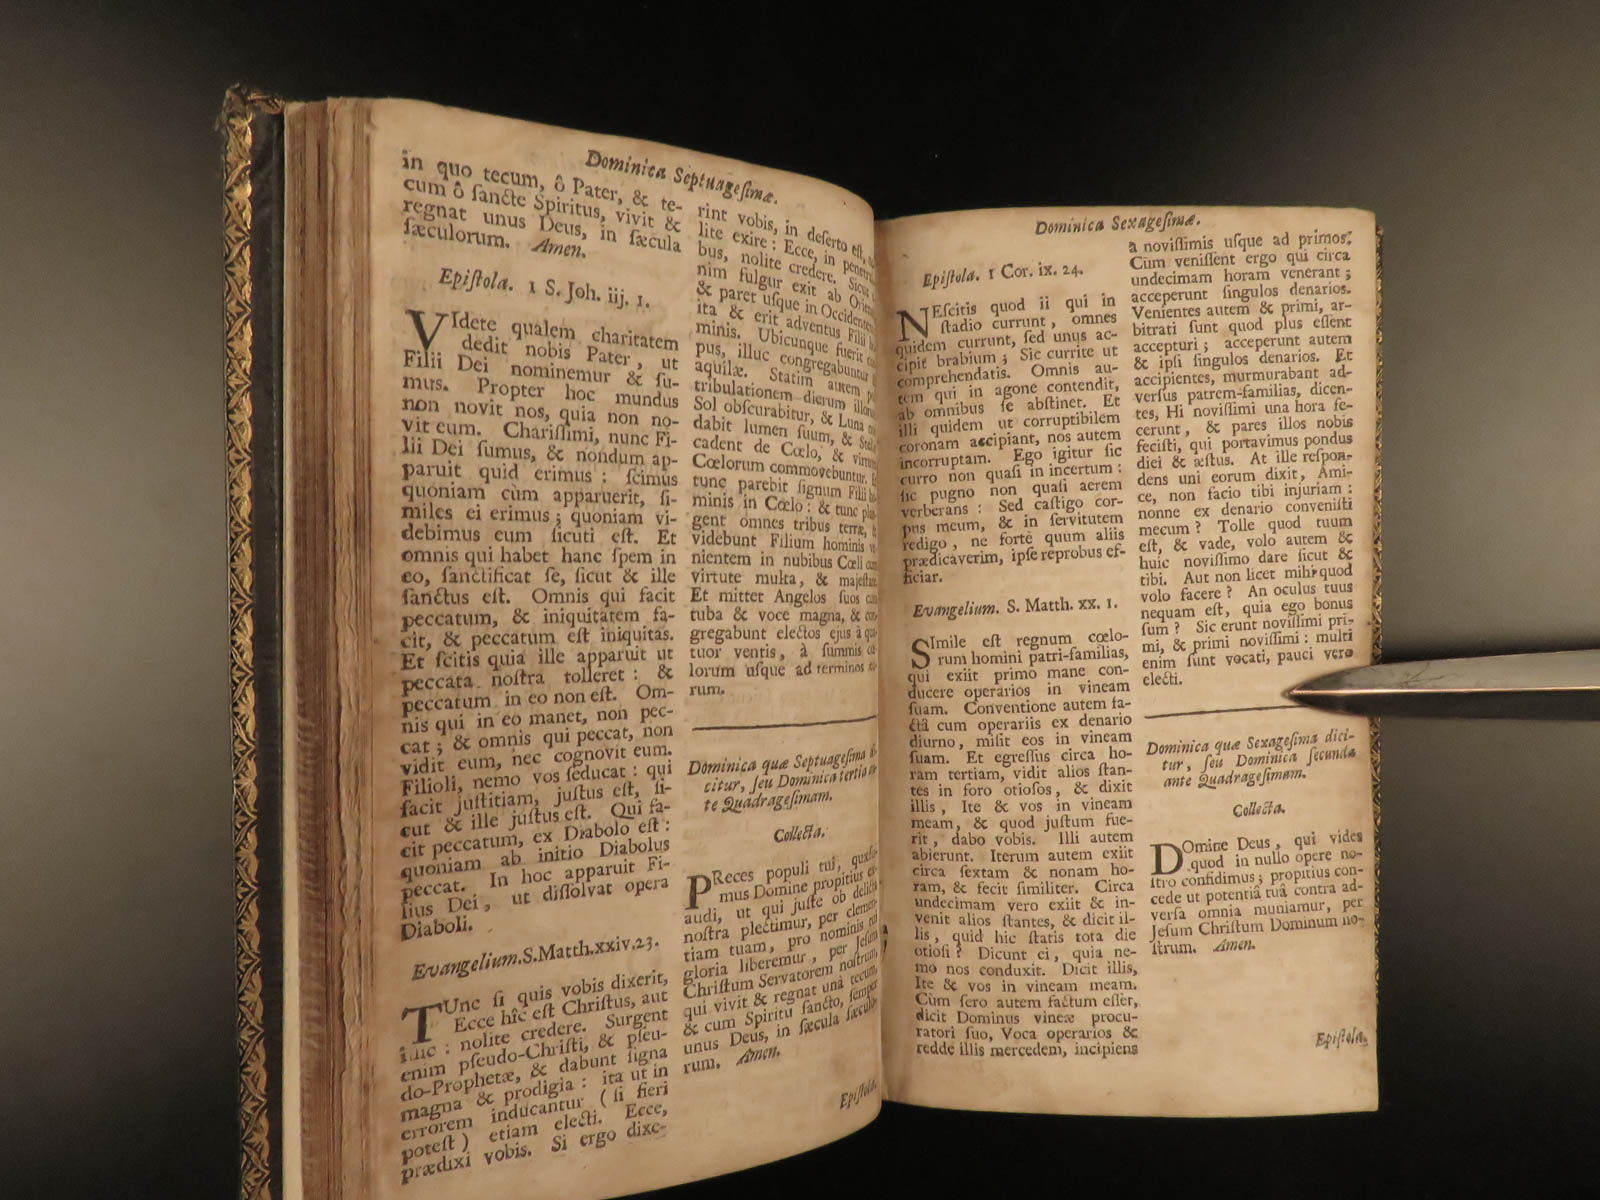 Dominica Septuagesimæ.
in quo tecum, ô Pater, & te-
cum ô sancte Spiritus, vivit &
regnat unus Deus, in sæcula
sæculorum. Amen.
Epistola. 1 S. Joh. iij. 1.
VIdete qualem charitatem
dedit nobis Pater, ut
Filii Dei nominemur & su-
mus. Propter hoc mundus
non novit nos, quia non no-
vit eum. Charissimi, nunc Fi-
lii Dei sumus, & nondum ap-
paruit quid erimus: scimus
quoniam cùm apparuerit, si-
miles ei erimus; quoniam vi-
debimus eum sicuti est. Et
omnis qui habet hanc spem in
eo, sanctificat se, sicut & ille
sanctus est. Omnis qui facit
peccatum, & iniquitatem fa-
cit, & peccatum est iniquitas.
Et scitis quia ille apparuit ut
peccata nostra tolleret: &
peccatum in eo non est. Om-
nis qui in eo manet, non pec-
cat; & omnis qui peccat, non
vidit eum, nec cognovit eum.
Filioli, nemo vos seducat: qui
facit justitiam, justus est, si-
cut & ille justus est. Qui fa-
cit peccatum, ex Diabolo est:
quoniam ab initio Diabolus
peccat. In hoc apparuit Fi-
lius Dei, ut dissolvat opera
Diaboli.
Evangelium. S. Matth. xxiv. 23.
TUnc si quis vobis dixerit,
Ecce hîc est Christus, aut
illic: nolite credere. Surgent
enim pseudo-Christi, & pseu-
do-Prophetæ, & dabunt signa
magna & prodigia: ita ut in
errorem inducantur (si fieri
potest) etiam electi. Ecce,
prædixi vobis. Si ergo dixe-
rint vobis, in deserto est,
lite exire: Ecce, in
bus, nolite credere. Sicut
nim fulgur exit ab
& paret usque in
ita & erit adventus Filii
minis. Ubicunque fuerit
pus, illuc congregabuntur
aquilæ. Statim autem
tribulationem dierum
Sol obscurabitur, & Luna
dabit lumen suum, &
cadent de Cœlo, &
Cœlorum commovebuntur.
tunc parebit signum Filii
minis in Cœlo: & tunc
gent omnes tribus terræ,
videbunt Filium hominis
nientem in nubibus Cœli
virtute multa, &
Et mittet Angelos suos
tuba & voce magna, &
gregabunt electos ejus à
tuor ventis, à summis
lorum usque ad terminos
rum.
Dominica quæ Septuagesima
citur, seu Dominica tertia
te Quadragesimam.
Collecta.
PReces populi tui,
mus Domine propitius
audi, ut qui juste ob
nostra plectimur, per
tiam tuam, pro nominis
gloria liberemur, per Jesum
Christum Servatorem nostrum,
qui vivit & regnat unà tecum,
& cum Spiritu sancto, semper
unus Deus, in sæcula
rum. Amen.
Epistola.
Dominica Sexagesimæ.
Epistola. 1 Cor. ix. 24.
NEscitis quod ii qui in
stadio currunt, omnes
quidem currunt, sed unus ac-
cipit brabium; Sic currite ut
comprehendatis. Omnis au-
tem qui in agone contendit,
ab omnibus se abstinet. Et
illi quidem ut corruptibilem
coronam accipiant, nos autem
incorruptam. Ego igitur sic
curro non quasi in incertum:
sic pugno non quasi aerem
verberans: Sed castigo cor-
pus meum, & in servitutem
redigo, ne fortè quum aliis
prædicaverim, ipse reprobus ef-
ficiar.
Evangelium. S. Matth. xx. 1.
SImile est regnum cœlo-
rum homini patri-familias,
qui exiit primo mane con-
ducere operarios in vineam
suam. Conventione autem fa-
ctâ cum operariis ex denario
diurno, misit eos in vineam
suam. Et egressus circa ho-
ram tertiam, vidit alios stan-
tes in foro otiosos, & dixit
illis, Ite & vos in vineam
meam, & quod justum fue-
rit, dabo vobis. Illi autem
abierunt. Iterum autem exiit
circa sextam & nonam ho-
ram, & fecit similiter. Circa
undecimam vero exiit & in-
venit alios stantes, & dicit il-
lis, quid hic statis tota die
otiosi? Dicunt ei, quia ne-
mo nos conduxit. Dicit illis,
Ite & vos in vineam meam.
Cùm sero autem factum esset,
dicit Dominus vineæ procu-
ratori suo, Voca operarios &
redde illis mercedem, incipiens
a novissimis usque ad primos.
Cùm venissent ergo qui circa
undecimam horam venerant;
acceperunt singulos denarios.
Venientes autem & primi, ar-
bitrati sunt quod plus essent
accepturi; acceperunt autem
& ipsi singulos denarios. Et
accipientes, murmurabant ad-
versus patrem-familias, dicen-
tes, Hi novissimi una hora fe-
cerunt, & pares illos nobis
fecisti, qui portavimus pondus
diei & æstus. At ille respon-
dens uni eorum dixit, Ami-
ce, non facio tibi injuriam:
nonne ex denario convenisti
mecum? Tolle quod tuum
est, & vade, volo autem &
huic novissimo dare sicut &
tibi. Aut non licet mihi quod
volo facere? An oculus tuus
nequam est, quia ego bonus
sum? Sic erunt novissimi pri-
mi, & primi novissimi: multi
enim sunt vocati, pauci vero
electi.
Dominica quæ Sexagesima dici-
tur, seu Dominica secunda
ante Quadragesimam.
Collecta.
DOmine Deus, qui vides
quod in nullo opere no-
stro confidimus; propitius con-
cede ut potentiâ tuâ contra ad-
versa omnia muniamur, per
Jesum Christum Dominum no-
strum. Amen.
Epistola.